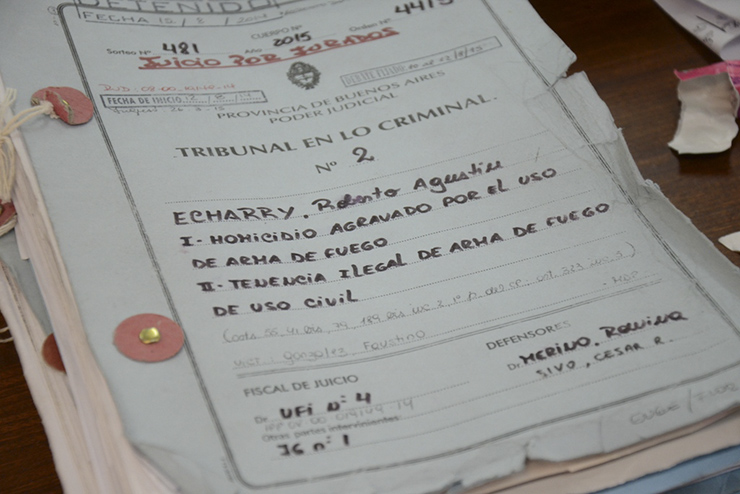 DETENIDO
FECHA 15/8/2014
CUERPO Nº
Orden Nº 4415
Sorteo Nº 481 Año 2015
JUICIO POR JURADOS
FECHA DE INICIO
PROVINCIA DE BUENOS AIRES
PODER JUDICIAL
TRIBUNAL EN LO CRIMINAL
Nº 2
ECHARRY, Roberto Agustin
I- HOMICIDIO AGRAVADO POR EL USO
DE ARMA DE FUEGO
II- TENENCIA ILEGAL DE ARMA DE FUEGO
DE USO CIVIL
Vict: Gonzalez Faustino
FISCAL DE JUICIO
DEFENSORES
Dr. UFI Nº 4
Dr. MERINO, Romina
SIVO, CESAR R.
Otras partes intervinientes
JG nº 1